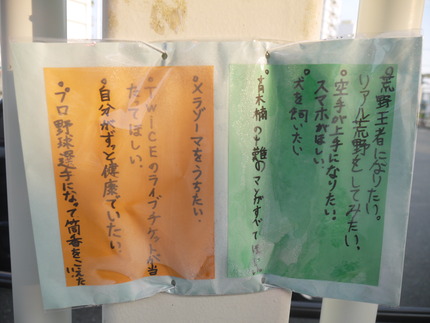 荒野王者になりたい。
リアル荒野をしてみたい。
空手が上手になりたい。
スマホがほしい。
犬を飼いたい
メラゾーマをうちたい。
TWICEのライブチケット当
たってほしい。
自分がずっと健康でいたい。
プロ野球選手になって筒香をこえたい